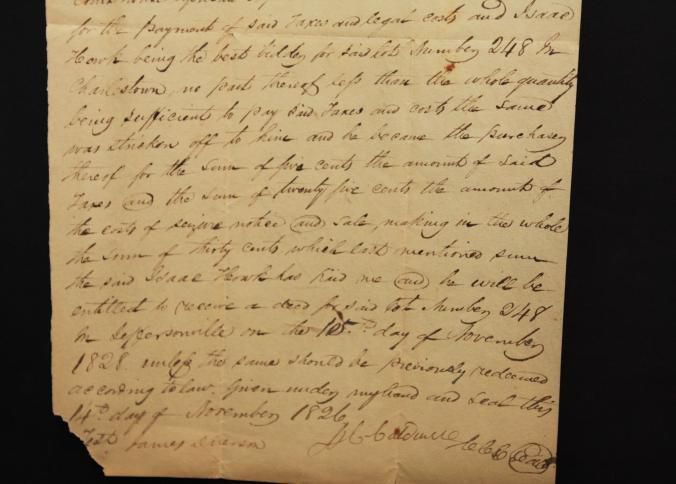 for the payment of said Taxes and legal costs and Isaac
Howk being the best bidder for said lot Number 248 In
Charlestown, no part thereof less than the whole quantity
being sufficient to pay said Taxes and costs the same
was stricken off to him and he became the purchaser
thereof for the sum of five cents the amount of said
Taxes and the sum of twenty five cents the amount of
the costs of seizure notice and sale, making in the whole
the sum of thirty cents which last mentioned sum
the said Isaac Howk has paid me and he will be
entitled to receive a deed for said lot Number 248
In Jeffersonville on the 15th day of November
1828 unless the same should be previously redeemed
according to law. Given under my hand and seal this
14th day of November 1826
Test James